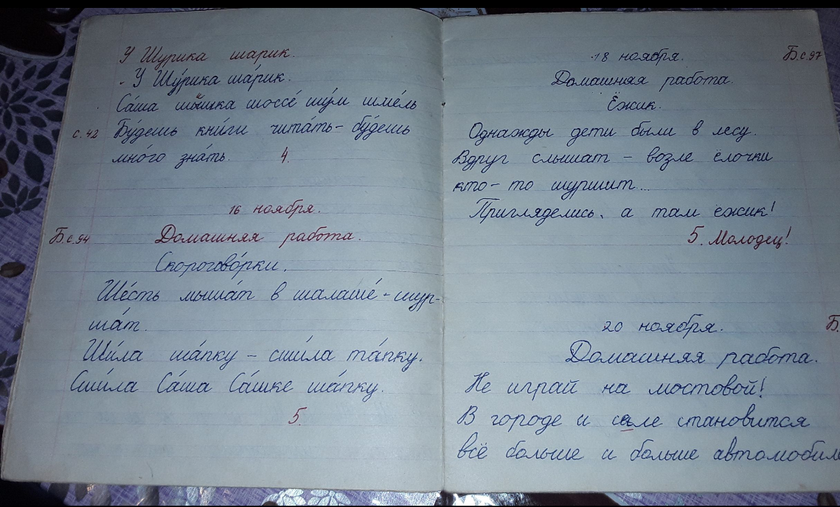 У Шурика шарик.
У Шу́рика ша́рик.
Са́ша ши́шка шоссе́ шум шме́ль
с. 42 Бу́дешь кни́ги чита́ть - бу́дешь
мно́го зна́ть. 4.
16 ноября.
Б. с. 94 Домашняя работа.
Скорогово́рки.
Ше́сть мыша́т в шалаше́ - шур-
ша́т.
Ши́ла ша́пку - сши́ла та́пку.
Сши́ла Са́ша Са́шке ша́пку.
5.
18 ноября. Б. с. 97
Домашняя работа.
Ёжик.
Однажды дети были в лесу.
Вдруг слышат - возле елочки
кто-то шуршит...
Пригляделись, а там ежик!
5. Молодец!
20 ноября. Б.
Домашняя работа.
Не играй на мостовой!
В городе и селе становится
всё больше и больше автомобил